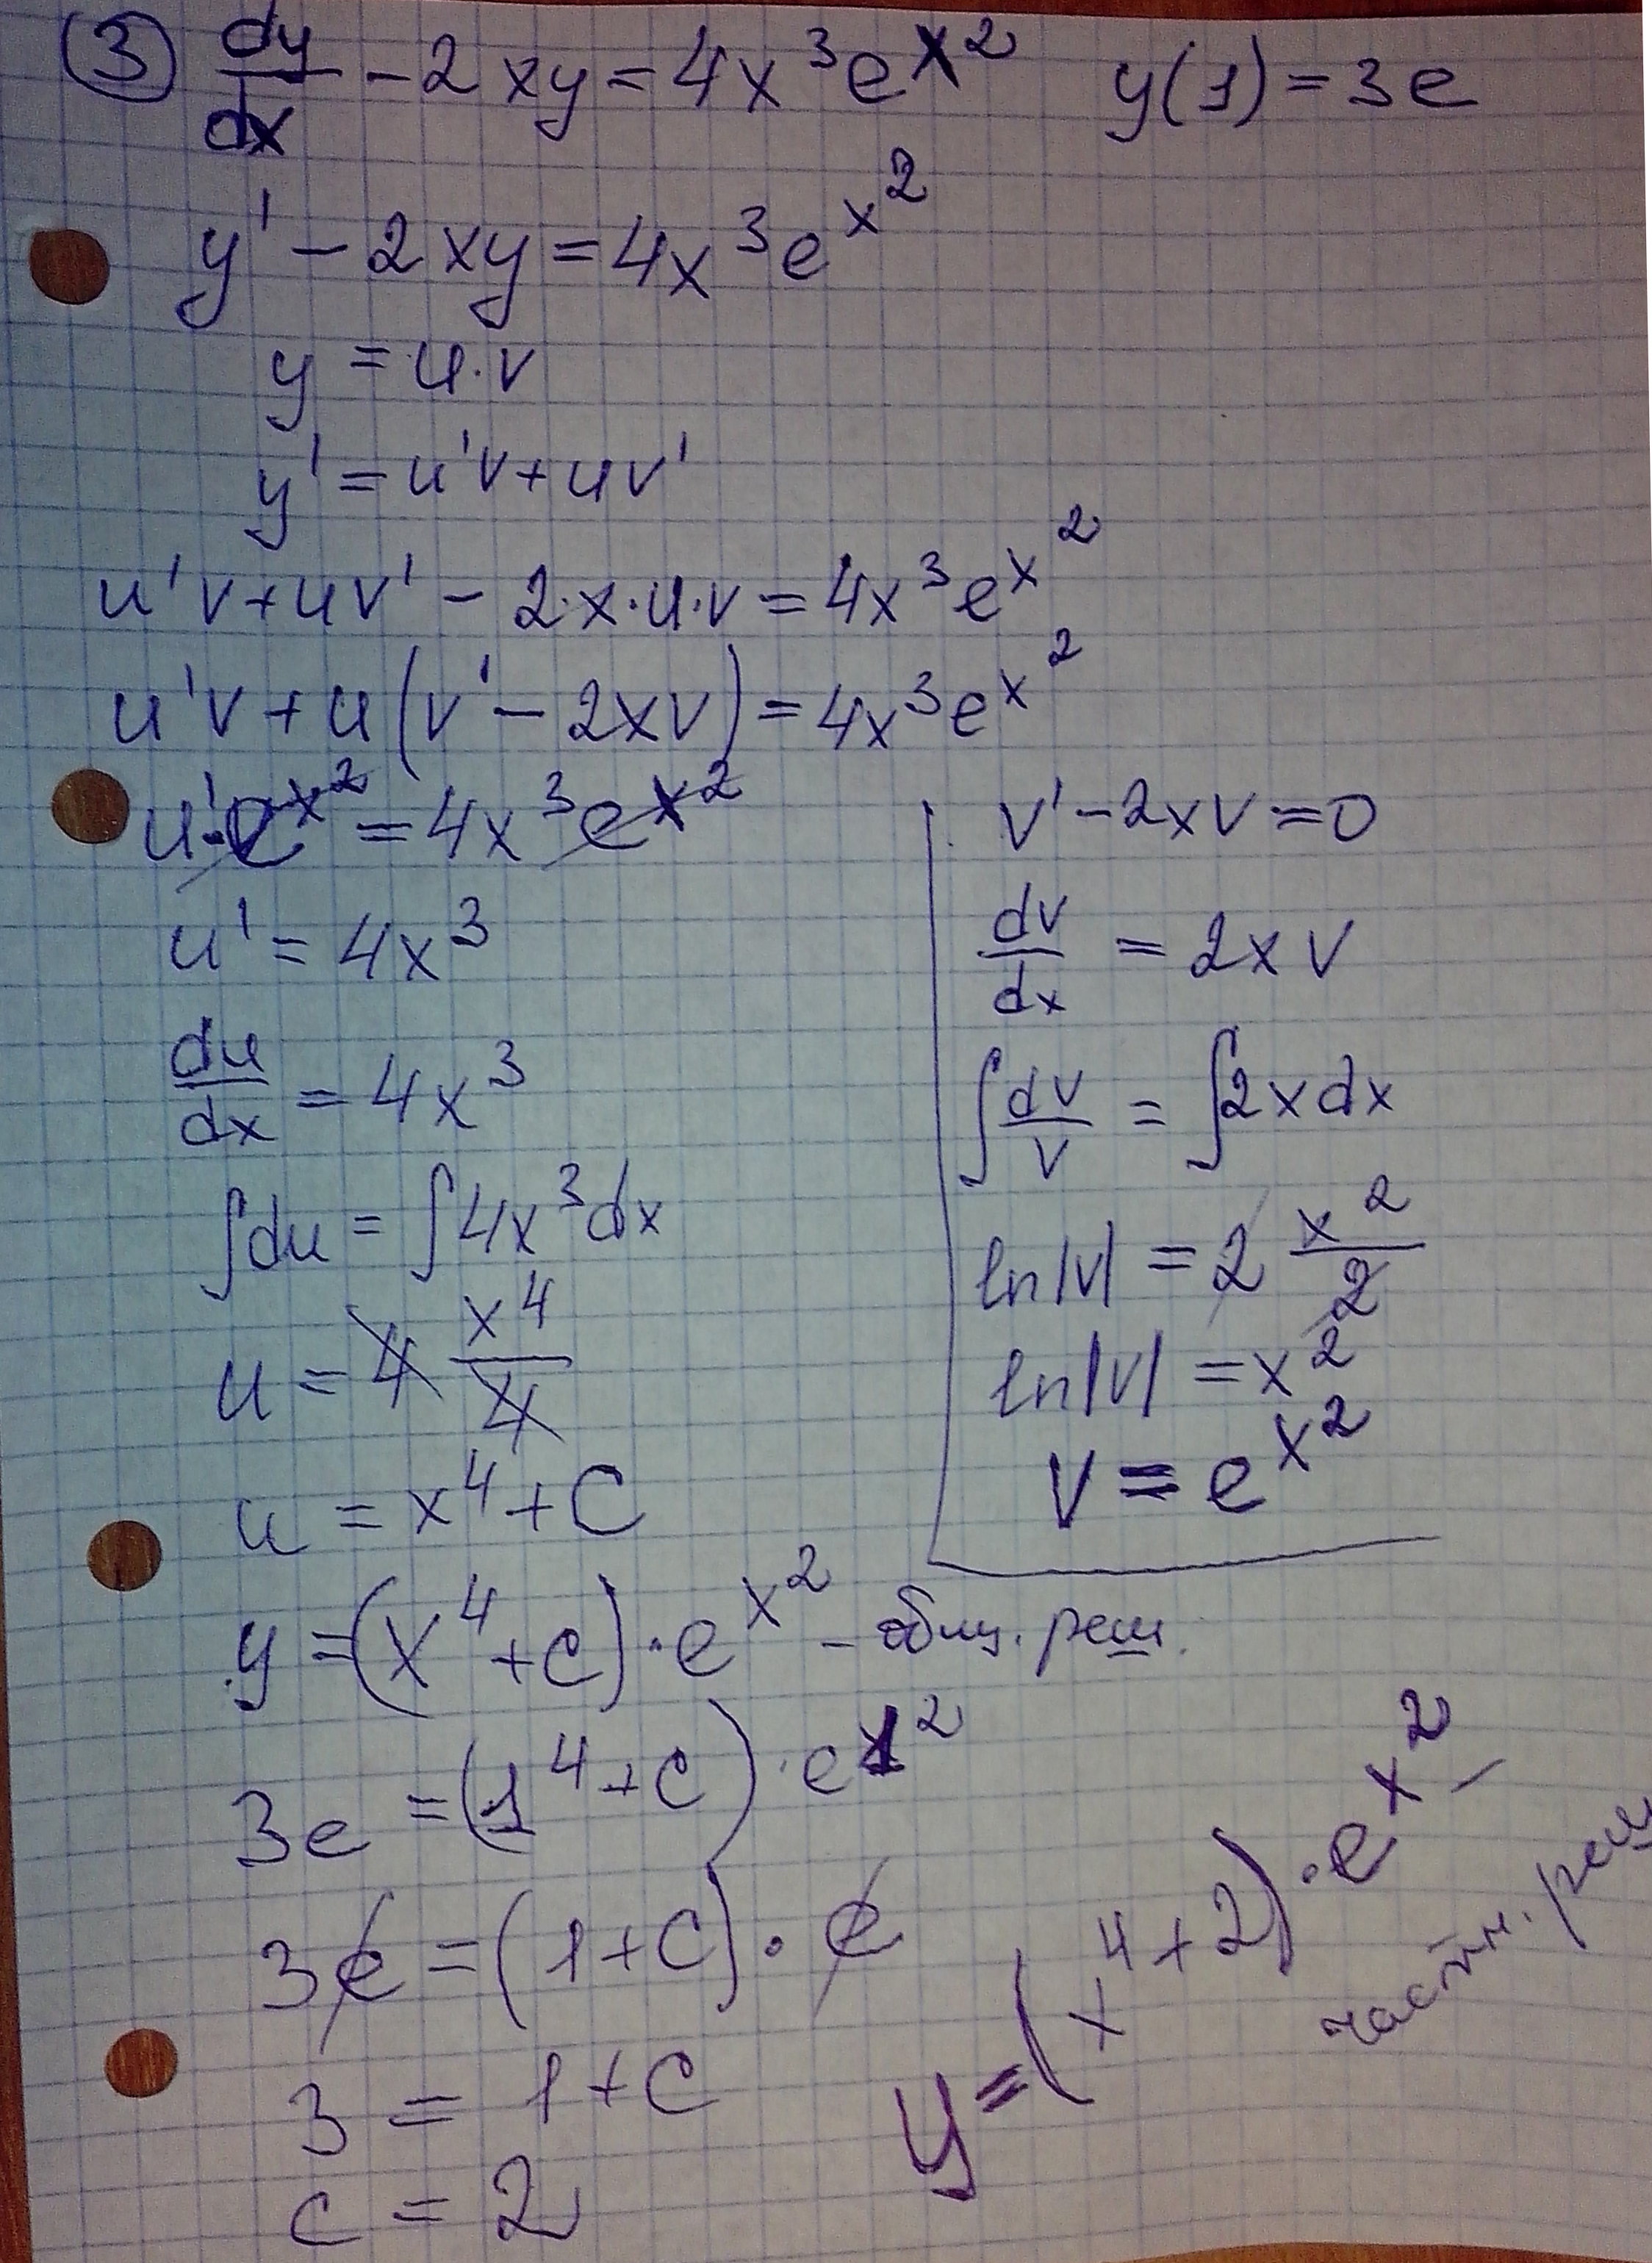 ③ dy/dx - 2xy = 4x³e^x² y(1) = 3e
y' - 2xy = 4x³e^x²
y = u·v
y' = u'v + uv'
u'v + uv' - 2·x·u·v = 4x³e^x²
u'v + u(v' - 2xv) = 4x³e^x²
u'·e^x² = 4x³e^x²
u' = 4x³
du/dx = 4x³
∫du = ∫4x³dx
u = 4 x⁴/4
u = x⁴ + C
v' - 2xv = 0
dv/dx = 2xv
∫dv/v = ∫2xdx
ln|v| = 2 x²/2
ln|v| = x²
v = e^x²
y = (x⁴ + c)·e^x² - общ. реш.
3e = (1⁴ + c)·e^1²
3e = (1 + c)·e
3 = 1 + c
c = 2
y = (x⁴ + 2)·e^x² -
частн. реш